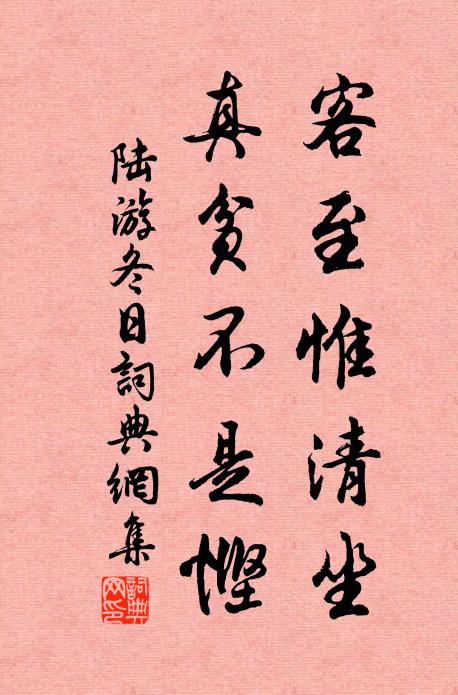 客至惟清坐
真贫不是悭
陆游冬日詞典網集
詞典網印